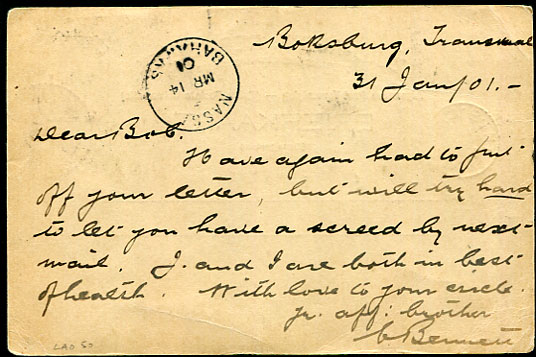 Boksburg, Transvaal
31 Jan/01.-
NASSAU
MR 14
01
BAHAMAS
Dear Bob.
Have again had to put
off your letter, but will try hard
to let you have a screed by next
mail. J. and I are both in best
of health. With love to your circle.
Yr. aff: brother
C Bennett
LAO 50